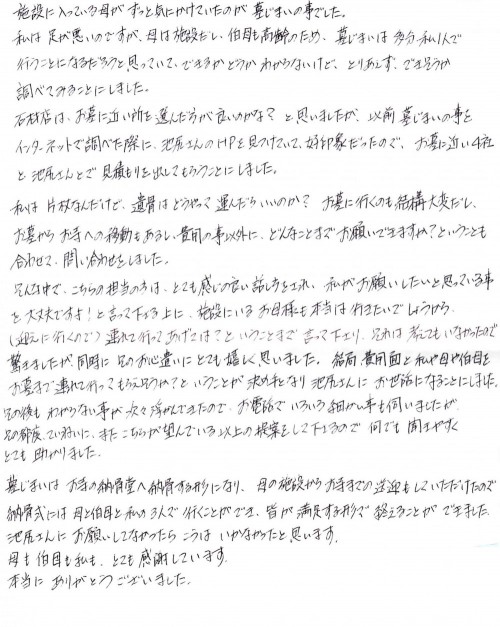 施設に入っている母がずっと気にかけていたのが墓じまいの事でした。
私は足が悪いのですが、母は施設だし、伯母も高齢のため、墓じまいは多分私1人で
行うことになるだろうと思っていて、できるかどうかわからないけど、とりあえず、できそうか
調べてみることにしました。
石材店は、お墓に近い所を選んだ方が良いのかな?と思いましたが、以前墓じまいの事を
インターネットで調べた際に、池尻さんのHPを見つけていて、好印象だったので、お墓に近い4社
と池尻さんとで見積もりを出してもらうことにしました。
私は片杖なんだけど、遺骨はどうやって運んだらいいのか?お墓に行くのも結構大変だし、
お墓からお寺への移動もあるし、費用の事以外に、どんなことまでお願いできますか?ということも
合わせて、問い合わせをしました。
そんな中で、こちらの担当の方は、とても感じの良い話し方をされ、私がお願いしたいと思っている事
を大丈夫ですよ!と言って下さる上に、施設にいるお母様も本当は行きたいでしょうから、
(迎えに行くので)連れて行ってあげては?ということまで言って下さり、それは考えてもいなかったので
驚きましたが、同時にそのお心遣いにとても嬉しく思いました。結局費用面と私や母や伯母を
お墓まで連れて行ってもらえそうか?ということが決め手となり池尻さんにお世話になることにしました。
その後もわからない事が次々浮かんできたので、お電話でいろいろ細かい事も伺いましたが、
その都度、ていねいに、またこちらが望んでいる以上の提案をして下さるので何でも聞きやすく
とても助かりました。
墓じまいはお寺の納骨堂へ納骨する形になり、母の施設からお寺までの送迎もしていただけたので
納骨式には母と伯母と私の3人で行くことができ、皆が満足する形で終えることができました。
池尻さんにお願いしてなかったらこうはいかなかったと思います。
母も伯母も私も、とても感謝しています。
本当にありがとうございました。